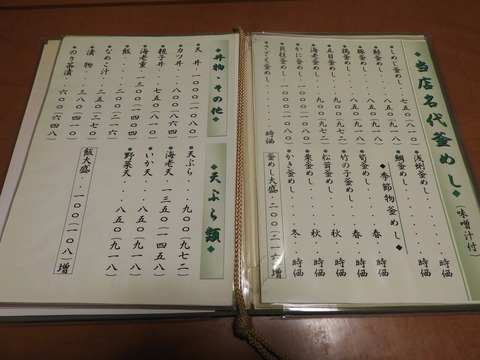 ◆当店名代釜めし◆(味噌汁付)
・しめじ釜めし・七五〇(八一〇)
・鮭釜めし
・豚釜めし
・鶏釜めし
・五目釜めし・九〇〇(九七二)
・海老釜めし・九〇〇(九七二)
・かに釜めし・一〇〇〇(一〇八〇)
・貝柱釜めし・一〇〇〇(一〇八〇)
・さざえ釜めし・・・時価
・浅蜊釜めし・・・時価
・鯛釜めし・・・時価
◆季節物釜めし◆
・筍釜めし 春 時価
・竹の子釜めし 春 時価
・松茸釜めし 秋 時価
・栗釜めし 秋 時価
・かき釜めし 冬 時価
釜めし大盛・二〇〇(二一六)増
◆丼物・その他◆
・天丼・一〇〇〇(一〇八〇)
・カツ丼・一〇〇〇(一〇八〇)
・親子丼・七五〇(八一〇)
・海老重・一三〇〇(一四〇四)
・飯・・二〇〇(二一六)
・なめこ汁・二〇〇(二一六)
・漬物・三八〇(四一〇)
・のり茶漬・六〇〇(六四八)
◆天ぷら類◆
・天ぷら・九〇〇(九七二)
・海老天・一三五〇(一四五八)
・いか天・八五〇(九一八)
・野菜天・八五〇(九一八)
飯大盛・一〇〇(一〇八)増